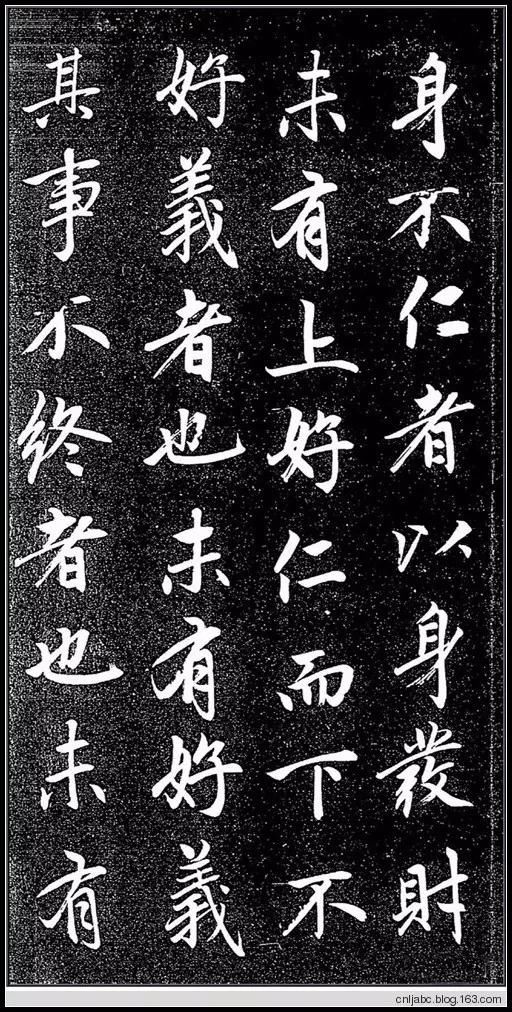 身不仁者以身發財
未有上好仁而下不
好義者也未有好義
其事不終者也未有
cnljabc.blog.163.com